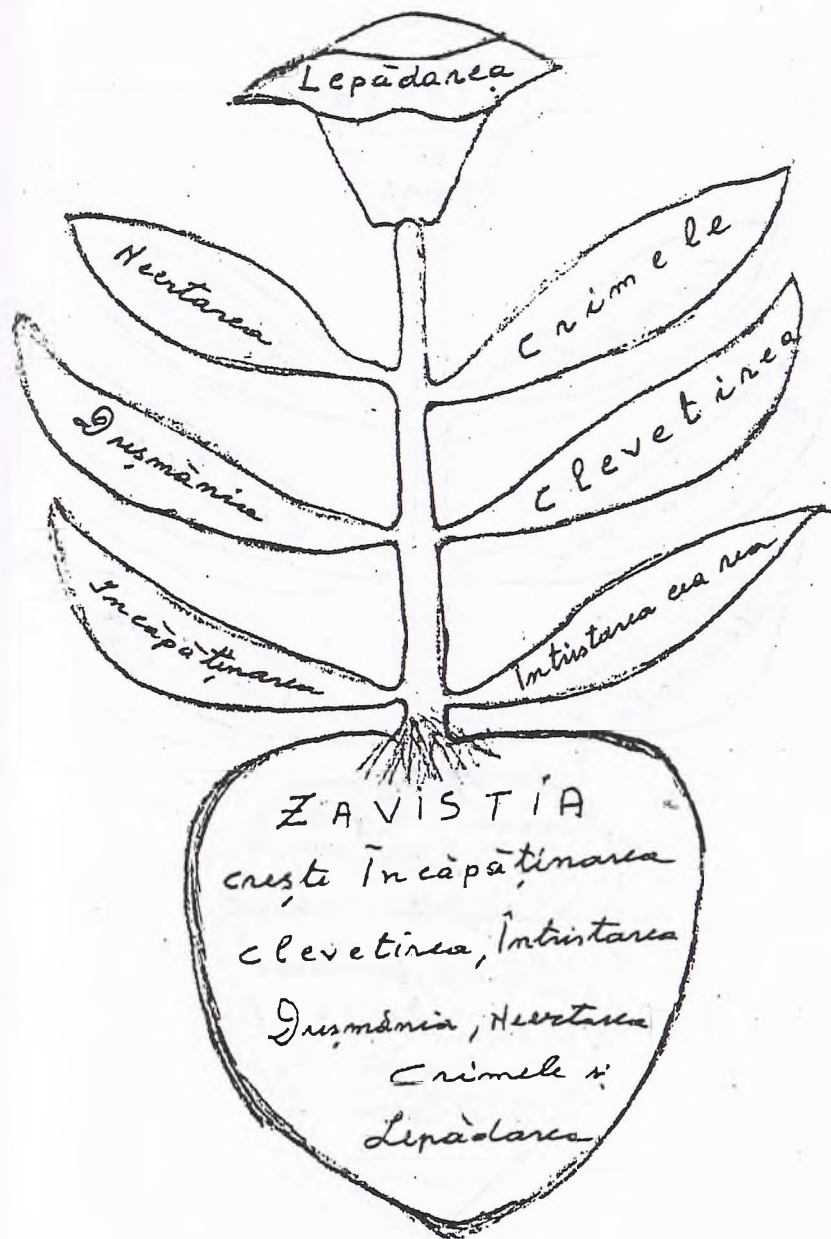 Lepădarea
Neertarea
Crimele
Dușmănia
Clevetirea
Încăpățînarea
Întristarea cea rea
ZAVISTIA
crește Încăpățînarea
Clevetirea, Întristarea
Dușmănia, Neertarea
Crimele și
Lepădarea